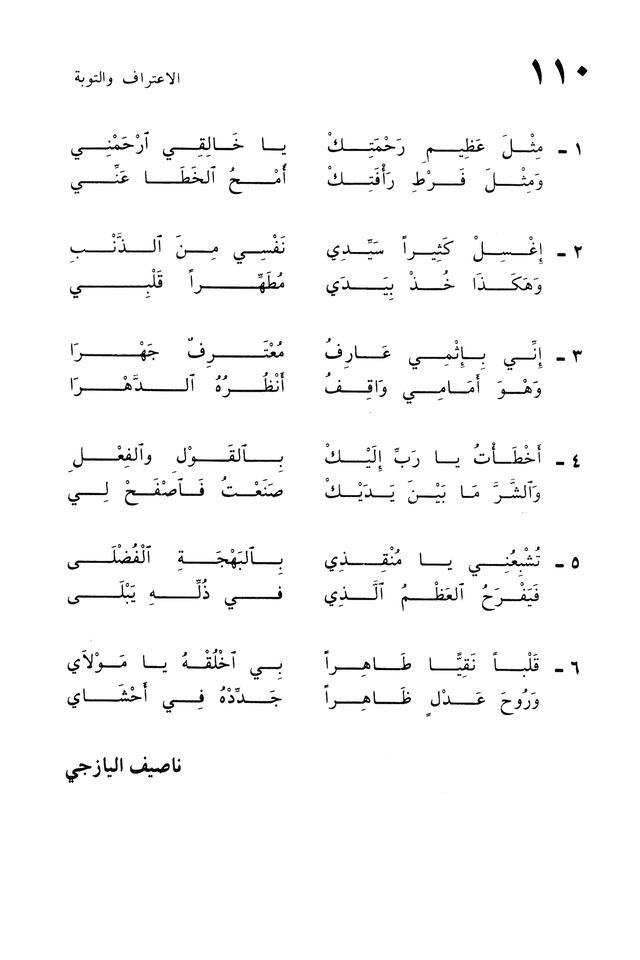 ١١٠
الاعتراف والتوبة
١ - مِثْلَ عَظِيمِ رَحْمَتِكْ يا خَالِقِي ٱرْحَمْنِي
وَمِثْلَ فَرْطِ رَأْفَتِكْ أُمْحُ ٱلخَطَا عَنِّي
٢ - إِغْسِلْ كَثِيراً سَيِّدِي نَفْسِي مِنَ ٱلذَّنْبِ
وَهَكَذَا خُذْ بِيَدَي مُطَهِّراً قَلْبِي
٣ - إِنِّي بِإِثْمِي عَارِفُ مُعْتَرِفٌ جَهْرَا
وَهْوَ أَمَامِي وَاقِفُ أَنْظُرُهُ ٱلدَّهْرَا
٤ - أَخْطَأْتُ يا رَبِّ إِلَيْكْ بِٱلقَوْلِ وٱلفِعْلِ
وَٱلشَّرَّ مَا بَيْنَ يَدَيْكْ صَنَعْتُ فَٱصْفَحْ لِي
٥ - تُشْبِعُنِي يا مُنْقِذِي بِٱلبَهْجَةِ ٱلْفُضْلَى
فَيَفْرَحُ ٱلعَظْمُ ٱلَّذِي في ذُلِّهِ يَبْلَى
٦ - قَلْباً نَقِيًّا طَاهِراً بِي ٱخْلُقْهُ يا مَوْلاَي
وَرُوحَ عَدْلٍ ظَاهِراً جَدِّدْهُ فِي أَحْشَاي
ناصيف اليازجي